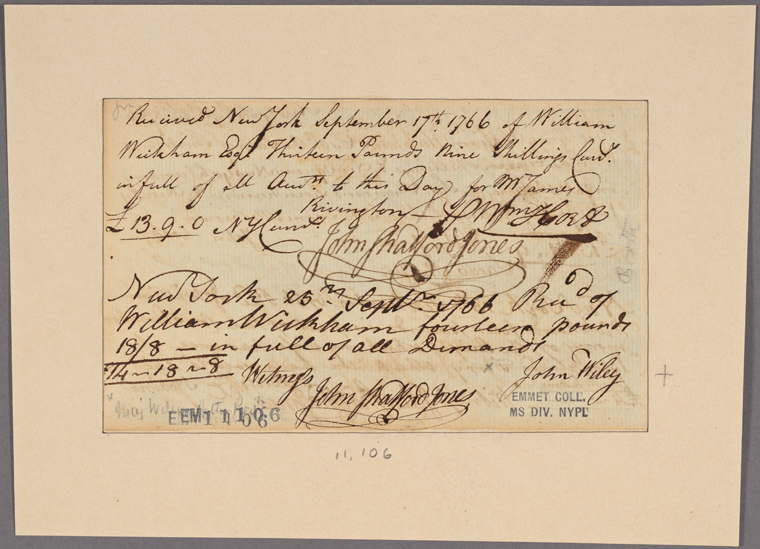 Recieved New York September 17th 1766 of William
Wickham Esqr Thirteen Pounds Nine Shillings Curr.
in full of all Accts to this Day for Mr James
Rivington
£13.9.0 NY Curr.
John Shatford Jones
New York 25th Septr 1766 Recd of
William Wickham fourteen pounds
18/8 – in full of all Demands
14–18–8 Witness
John Wiley
John Shatford Jones
EMMET COLL.
MS DIV. NYPL
EM 11106
11,106